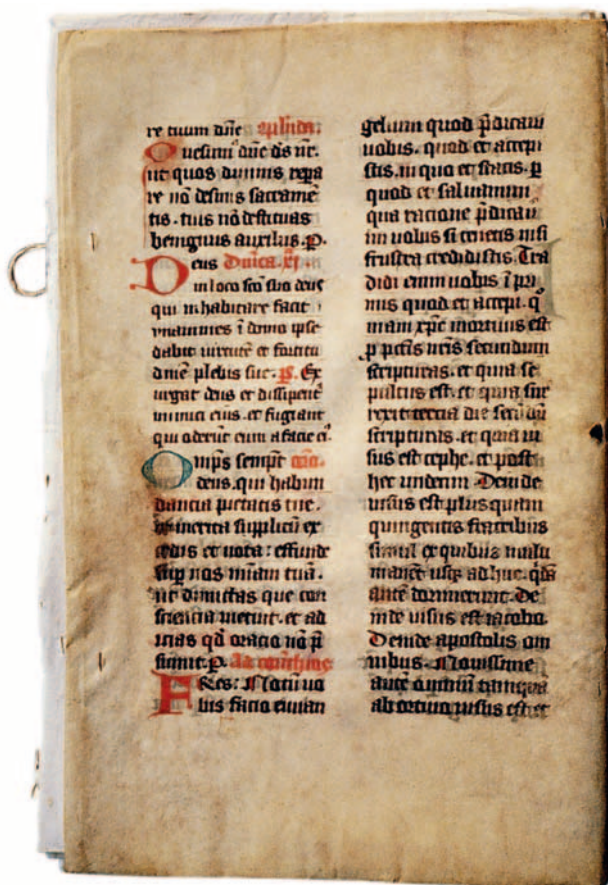 re tuum dn̄e 
Quesim⁹ dn̄e ds nr̄.
ut quos diuinis repa
re nō desinis sacramē
tis. tuis nō destituas
benignus auxiliis. P.
Deus Dn̄ica. xi.
in loco sc̄o suo deus
qui inhabitare facit
vnanimes ī domo ipse
dabit uirtutē et fortitu
dinē plebis sue. ps. Ex
urgat deus et dissipent᷑
inimici eius. et fugiant
qui oderūt eum a facie ei⁹.
Omps sempit̄
deus. qui habun
dancia pietatis tue.
et merita supplicū ex
cedis et uota: effunde
sup nos miam tuā.
ut dimittas que con
sciencia metuit. et ad
icias qd̄ oracio nō p̄
sumit. P. Ad corinthios
FRes: Notū uo
bis facio euuan
gelium quod p̄dicaui
uobis. quod et accepi
stis. in quo et statis. p
quod et saluamini
qua racione p̄dicau
im uobis si tenetis nisi
frustra credidistis. Tra
didi enim uobis ī pri
mis quod et accepi. qº
niam xp̄c mortuus est
p pc̄tis nr̄is secundum
scripturas. et quia se
pultus est. et quia sur
rexit tercia die scd̄m
scripturas. et quia ui
sus est cephe. et post
hec undecim. Deinde
uisus est plus quam
quingentis fratribus
simul ex quibus multi
manēt usq; adhuc. qdā
autē dormierūt. De
inde uisus est iacobo.
Deinde apostolis om
nibus. Nouissime
autē omniū tamquā
abortiuo uisus est et